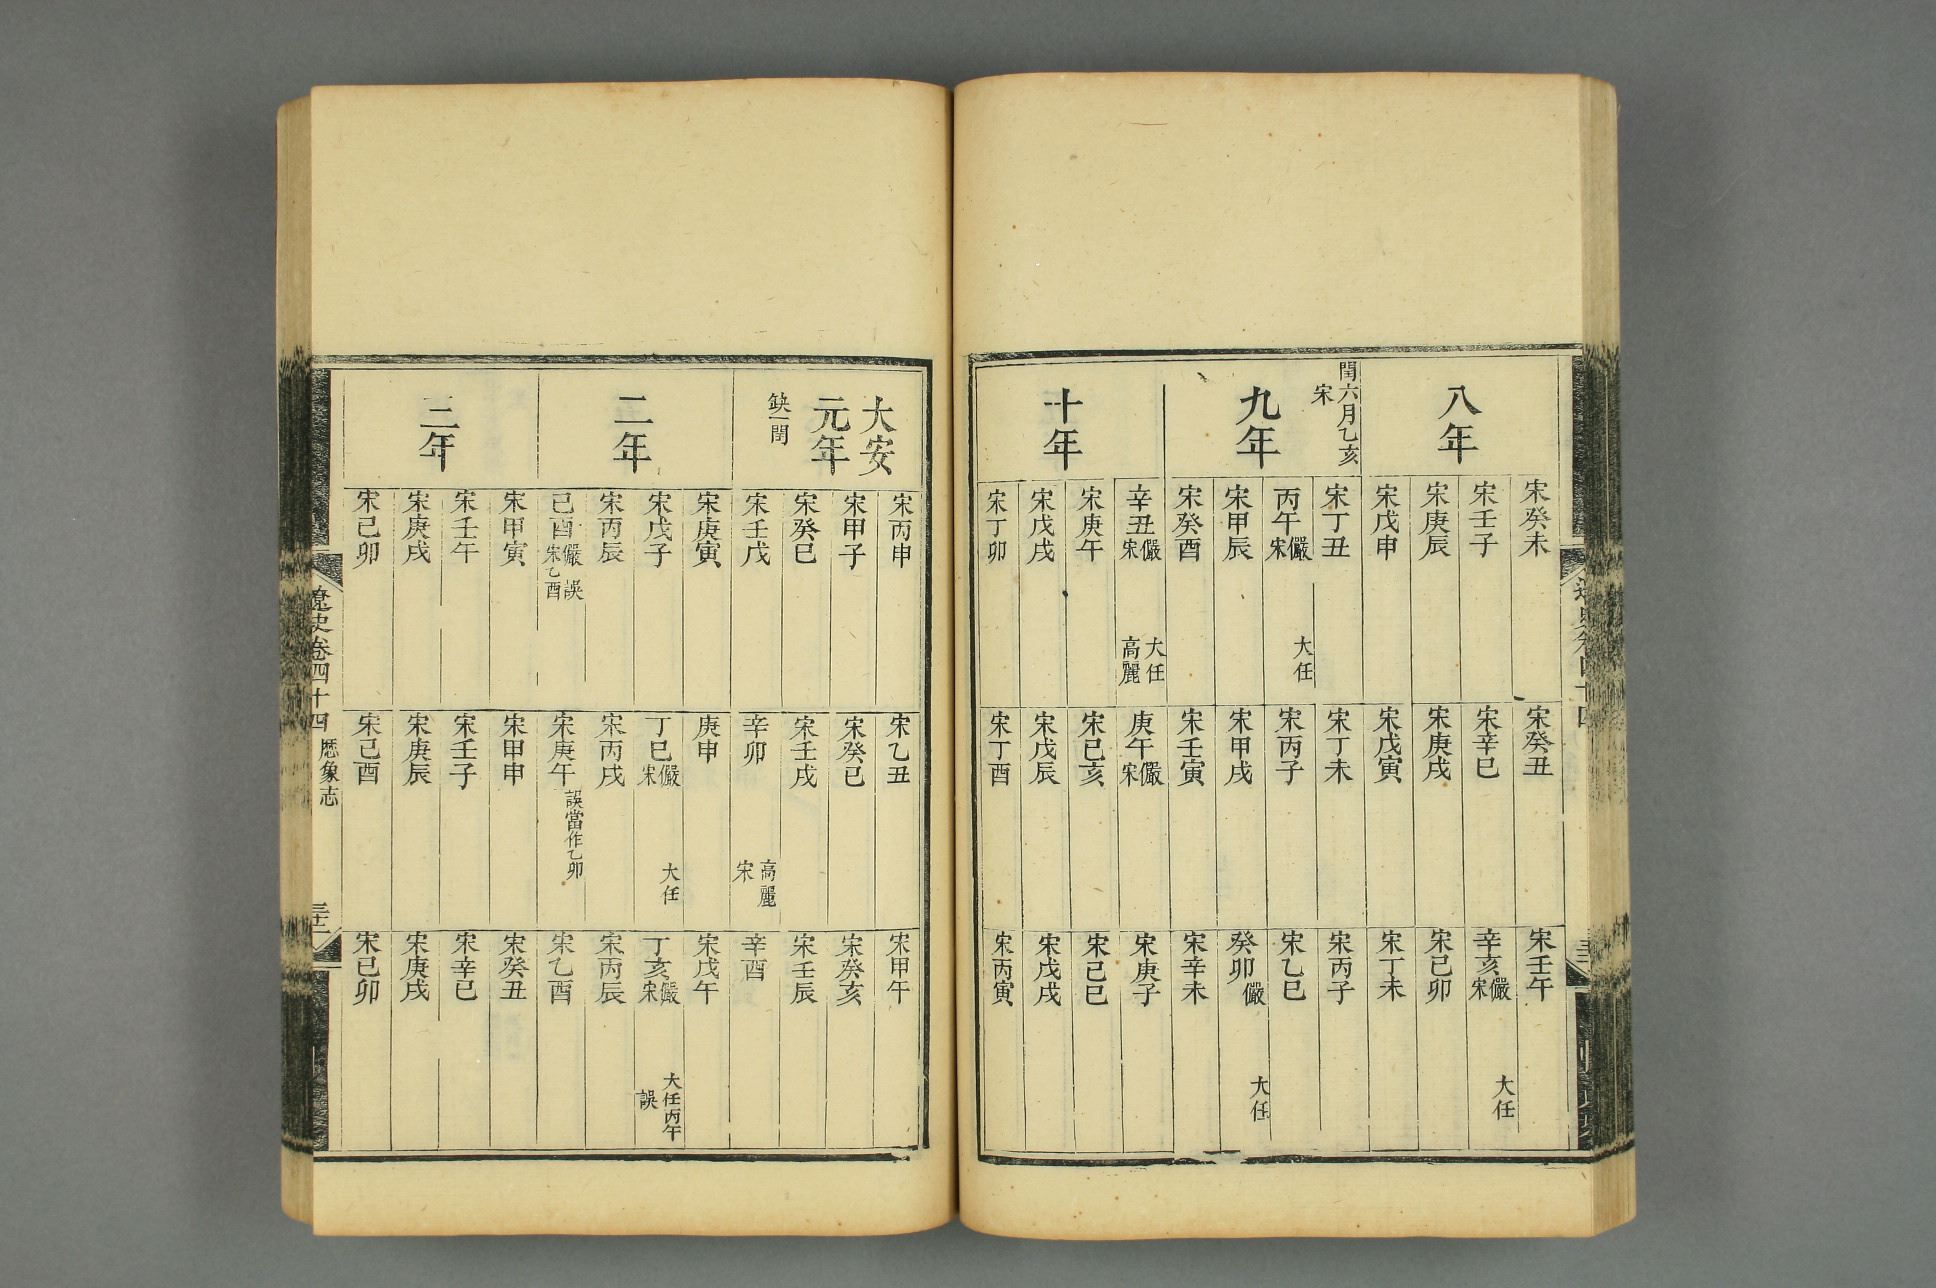 八年
宋癸未
宋癸丑
宋壬午
宋壬子
宋辛巳
辛亥儼宋
大任
宋庚辰
宋庚戌
宋己卯
宋戊申
宋戊寅
宋丁未
閏六月乙亥
宋
九年
宋丁丑
宋丁未
宋丙子
丙午儼宋
大任
宋丙子
宋乙巳
宋甲辰
宋甲戌
癸卯儼
大任
宋癸酉
宋壬寅
宋辛未
十年
辛丑儼宋
大任
高麗
庚午儼宋
宋庚子
宋庚午
宋己亥
宋己巳
宋戊戌
宋戊辰
宋戊戌
宋丁卯
宋丁酉
宋丙寅
大安
元年
缺一閏
宋丙申
宋乙丑
宋甲午
宋甲子
宋癸巳
宋癸亥
宋癸巳
宋壬戌
宋壬辰
宋壬戌
辛卯
高麗
宋
辛酉
二年
宋庚寅
庚申
宋戊午
宋戊子
丁巳儼宋
大任
丁亥儼宋
大任丙午
誤
宋丙辰
宋丙戌
宋丙辰
己酉儼誤
宋乙酉
宋庚午誤當作乙卯
宋乙酉
三年
宋甲寅
宋甲申
宋癸丑
宋壬午
宋壬子
宋辛巳
宋庚戌
宋庚辰
宋庚戌
宋己卯
宋己酉
宋己卯
遼史卷四十四
歷象志
三十二